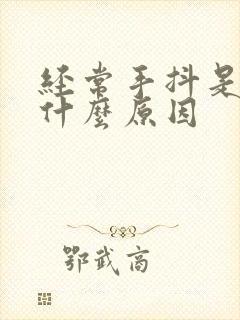 経常手抖是
什麼原因
鄂武商